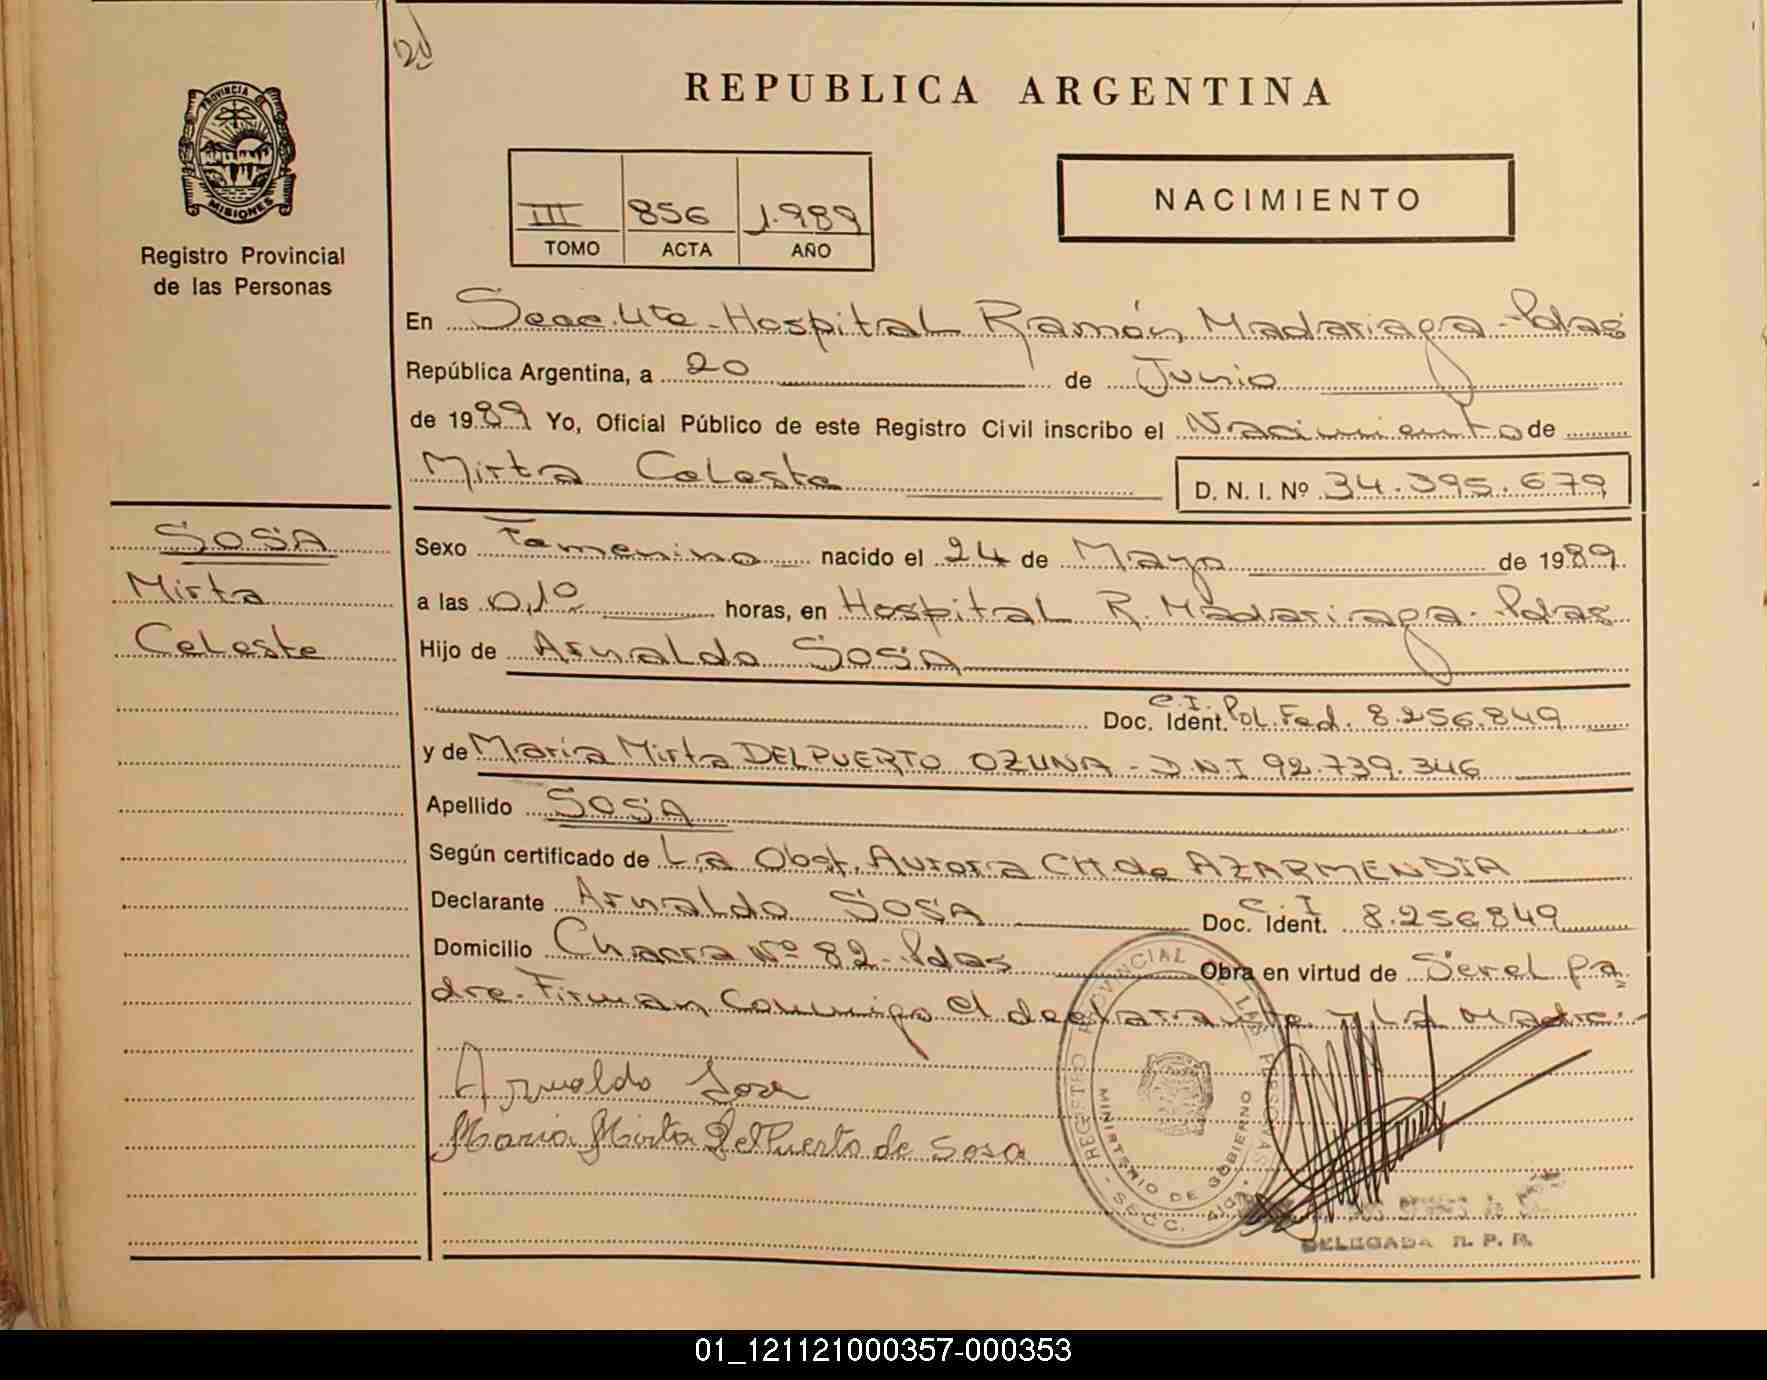 REPUBLICA ARGENTINA
PROVINCIA DE
MISIONES
Registro Provincial
de las Personas
NACIMIENTO
III 856 1.989
TOMO ACTA AÑO
En Secc. 4ta - Hospital Ramón Madariaga - Pdas
República Argentina, a 20 de Junio
de 1989 Yo, Oficial Público de este Registro Civil inscribo el Nacimiento de
Mirta Celeste D. N. I. Nº 34.395.679
SOSA
Mirta
Celeste
Sexo Femenino nacido el 24 de Mayo de 1989.
a las 0,10 horas, en Hospital R. Madariaga - Pdas
Hijo de Arnaldo SOSA
Doc. Ident. C.I. Pol. Fed. 8.256.849
y de María Mirta DELPUERTO OZUNA - D.N.I 92.739.346
Apellido SOSA
Según certificado de La Obst. Aurora CH de AZARMENDIA
Declarante Arnaldo SOSA Doc. Ident. C.I 8.256.849
Domicilio Chacra Nº 82 - Pdas Obra en virtud de Ser el pa
dre. Firman conmigo el declarante y La Madre.-
Arnaldo Sosa
Maria Mirta DelPuerto de Sosa
REGISTRO PROVINCIAL DE LAS PERSONAS
MINISTERIO DE GOBIERNO
SECC.
DELEGADA R. P. P.
01_121121000357-000353